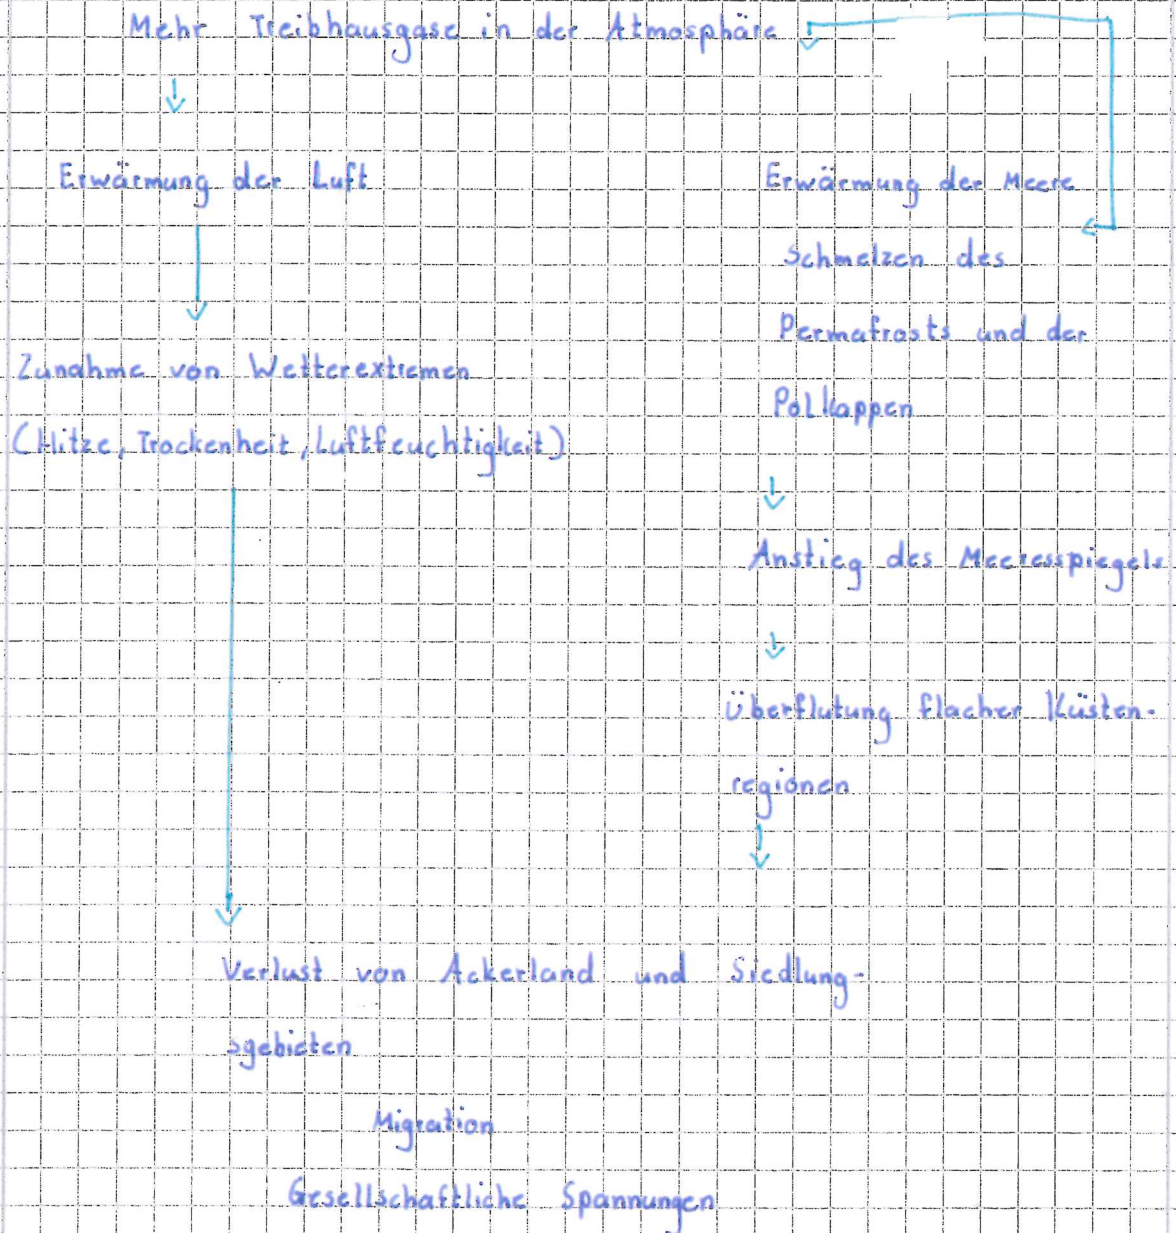 Mehr Treibhausgase in der Atmosphäre
Erwärmung der Luft
Zunahme von Wetterextremen
(Hitze, Trockenheit, Luftfeuchtigkeit)
Erwärmung der Meere
Schmelzen des
Permafrosts und der
Polkappen
Anstieg des Meeresspiegels
Überflutung flacher Küsten-
regionen
Verlust von Ackerland und Siedlung-
sgebieten
Migration
Gesellschaftliche Spannungen